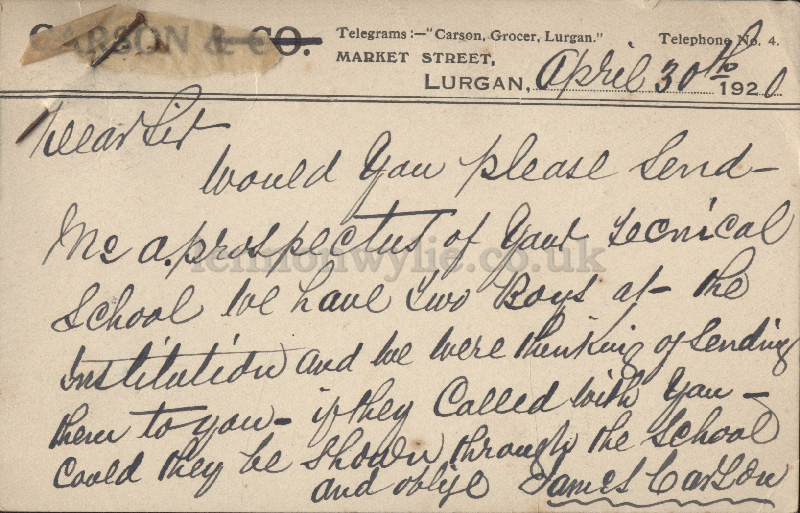 CARSON & CO. Telegrams:—"Carson, Grocer, Lurgan." Telephone No. 4.
MARKET STREET,
LURGAN, April 30th 1920
Dear Sir
Would You please Send
Me a prospectus of Your Tecnical
School We have two Boys at the
institution and We Were thinking of Sending
them to you - if they Called With You -
Could they be Shown through the School
and oblige James Carson
lennonwylie.co.uk